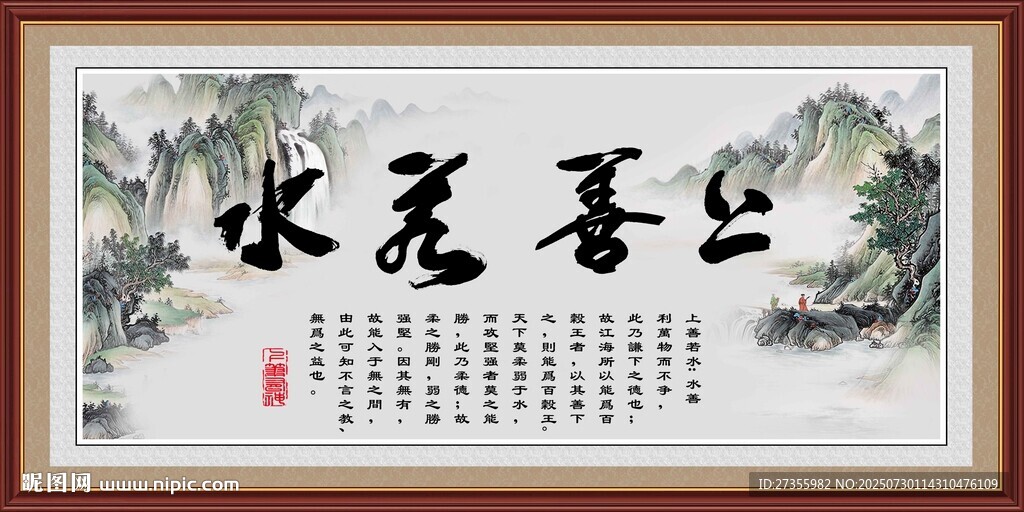 上善若水
上善若水"水善
利萬物而不爭,
此乃謙下之德也;
故江海所以能爲百
穀王者,以其善下
之,則能爲百穀王。
天下莫柔弱于水,
而攻堅强者莫之能
勝,此乃柔德;故
柔之勝剛,弱之勝
强堅。因其無有,
故能入于無之間,
由此可知不言之教、
無爲之益也。
昵图网 www.nipic.com
ID:27355982 NO:20250730114310476109